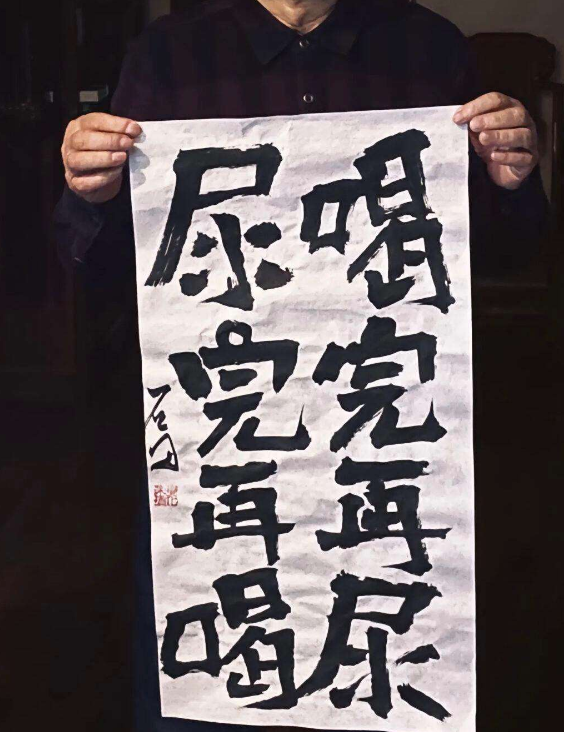 喝完再尿
尿完再喝